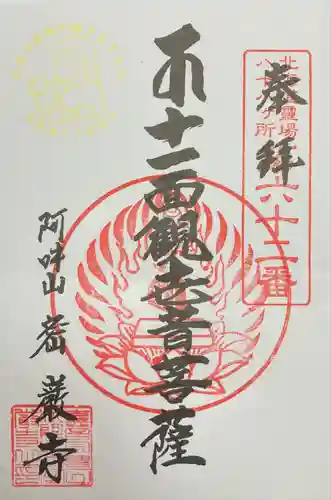 奉拝
北
霊場
八十八ヶ所
六十二番
十一面観世音菩薩
阿吽山
密巌寺